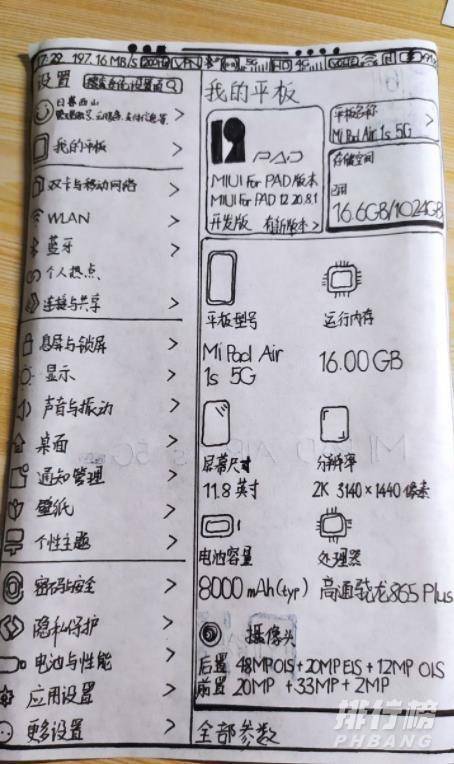 17:29 197.16MB/S VPN HD
设置
日暮西山
我的平板
双卡与移动网络
WLAN
蓝牙
个人热点
连接与共享
息屏与锁屏
显示
声音与振动
桌面
通知管理
壁纸
个性主题
密码与安全
隐私保护
电池与性能
应用设置
更多设置
我的平板
12 PAD
MIUI For PAD版本
MIUI For PAD 12 20.8.1
开发版 有新版本>
平板名称
Mi Pad Air 1s 5G
存储空间
已用
16.6GB/1024GB
平板型号
Mi Pad Air
1s 5G
运行内存
16.00 GB
屏幕尺寸
11.8 英寸
分辨率
2K 3140×1440 像素
电池容量
8000 mAh(typ)
处理器
高通骁龙865 Plus
摄像头
后置 48MP OIS+20MP EIS+12MP OIS
前置 20MP +33MP+2MP
全部参数
排行榜
PHBANG